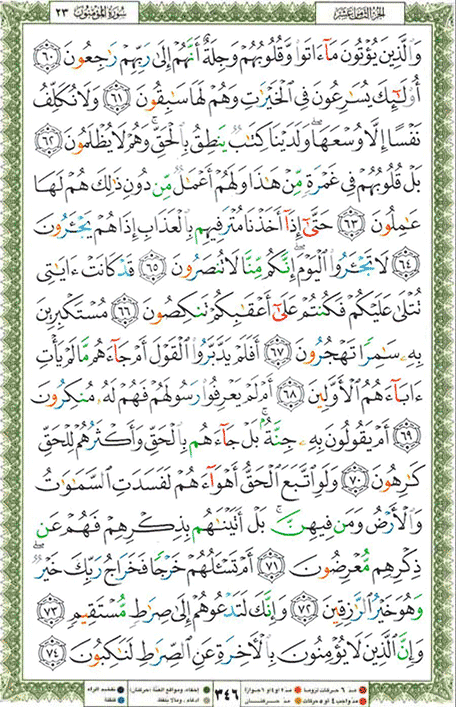 سورة المؤمنون ٢٣
الجزء الثامن عشر
وَالَّذِينَ يُؤْتُونَ مَا ءَاتَوا وَّقُلُوبُهُمْ وَجِلَةٌ أَنَّهُمْ إِلَىٰ رَبِّهِمْ رَاجِعُونَ ٦٠
أُوْلَٰئِكَ يُسَارِعُونَ فِي الْخَيْرَاتِ وَهُمْ لَهَا سَابِقُونَ ٦١ وَلَا نُكَلِّفُ
نَفْسًا إِلَّا وُسْعَهَا وَلَدَيْنَا كِتَابٌ يَنطِقُ بِالْحَقِّ وَهُمْ لَا يُظْلَمُونَ ٦٢
بَلْ قُلُوبُهُمْ فِي غَمْرَةٍ مِّنْ هَٰذَا وَلَهُمْ أَعْمَالٌ مِّن دُونِ ذَٰلِكَ هُمْ لَهَا
عَامِلُونَ ٦٣ حَتَّىٰ إِذَا أَخَذْنَا مُتْرَفِيهِم بِالْعَذَابِ إِذَا هُمْ يَجْـَٔرُونَ
٦٤ لَا تَجْـَٔرُوا الْيَوْمَ إِنَّكُم مِّنَّا لَا تُنصَرُونَ ٦٥ قَدْ كَانَتْ ءَايَاتِي
تُتْلَىٰ عَلَيْكُمْ فَكُنتُمْ عَلَىٰ أَعْقَابِكُمْ تَنكِصُونَ ٦٦ مُسْتَكْبِرِينَ
بِهِ سَامِرًا تَهْجُرُونَ ٦٧ أَفَلَمْ يَدَّبَّرُوا الْقَوْلَ أَمْ جَاءَهُم مَّا لَمْ يَأْتِ
ءَابَاءَهُمُ الْأَوَّلِينَ ٦٨ أَمْ لَمْ يَعْرِفُوا رَسُولَهُمْ فَهُمْ لَهُ مُنكِرُونَ
٦٩ أَمْ يَقُولُونَ بِهِ جِنَّةٌ بَلْ جَاءَهُم بِالْحَقِّ وَأَكْثَرُهُمْ لِلْحَقِّ
كَارِهُونَ ٧٠ وَلَوِ اتَّبَعَ الْحَقُّ أَهْوَاءَهُمْ لَفَسَدَتِ السَّمَاوَاتُ
وَالْأَرْضُ وَمَن فِيهِنَّ بَلْ أَتَيْنَاهُم بِذِكْرِهِمْ فَهُمْ عَن
ذِكْرِهِم مُّعْرِضُونَ ٧١ أَمْ تَسْـَٔلُهُمْ خَرْجًا فَخَرَاجُ رَبِّكَ خَيْرٌ
وَهُوَ خَيْرُ الرَّازِقِينَ ٧٢ وَإِنَّكَ لَتَدْعُوهُمْ إِلَىٰ صِرَاطٍ مُّسْتَقِيمٍ ٧٣
وَإِنَّ الَّذِينَ لَا يُؤْمِنُونَ بِالْآخِرَةِ عَنِ الصِّرَاطِ لَنَاكِبُونَ ٧٤
مد ٦ حركات لزوماً مد ٢ أو ٤ أو ٦ جوازاً
مد واجب ٤ أو ٥ حركات مد حركتان
٣٤٦
إخفاء، ومواقع الغنة (حركتان) تفخيم الراء
إدغام، وما لا يلفظ قلقلة